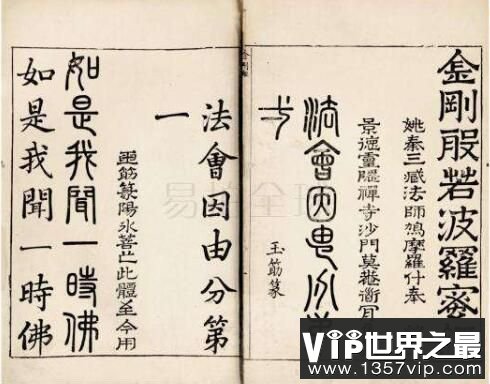 金剛般若波羅蜜
姚秦三藏法師鳩摩羅什奉
景德靈隱禪寺沙門莫菴道
法會因由分第
弌
玉筯篆
法會因由分第
一
玉筯篆陽冰善此體至今用
如是我聞一時佛
如是我聞一時佛
易拍全球
VIP世界之最
www.1357vip.com